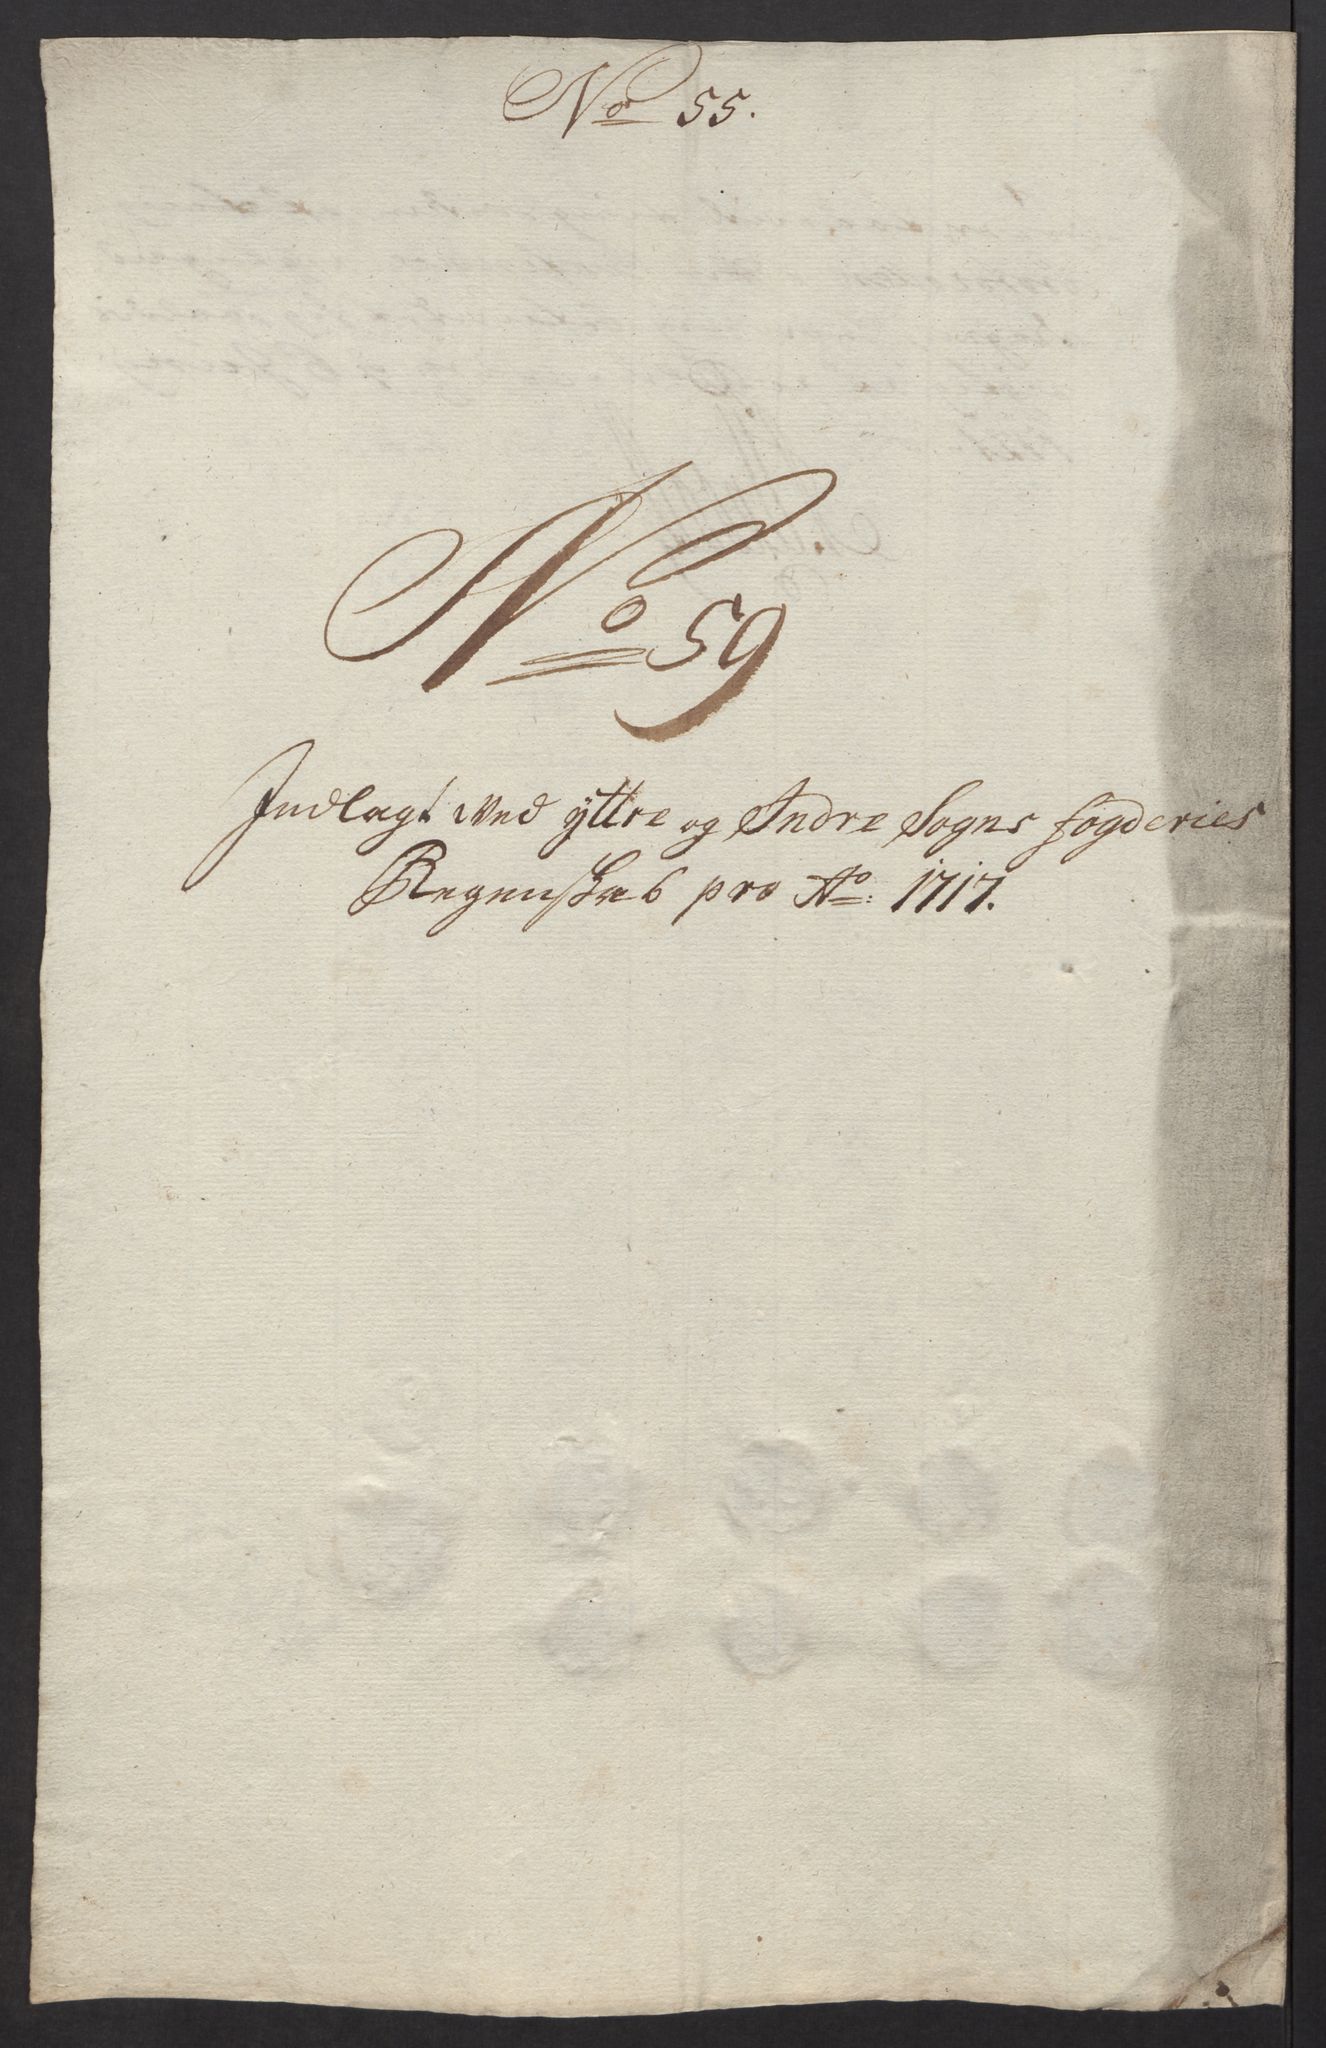 No 55.
No 59
Indlagt Ved yttre og Indre Sogns fogderies
Regenskab pro Ao: 1717.